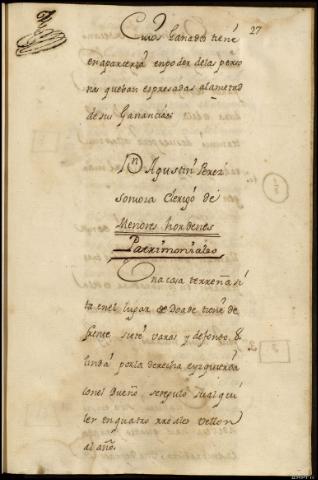 27
Cuios Ganados tiene
en aparceria en poder de las perso
nas que ban espresadas ala metad
de sus Ganancias
Dn Agustin Perez
somoza Clerigo de
Menores hordenes
Patrimoniales
Una casa terreña si
ta en el lugar de Doade tiene de
frente siete varas y de fondo, 8
linda por la derecha e yzquierda
con el Dueño se regulo su alqui
ler en quatro rreales vellon
al año.